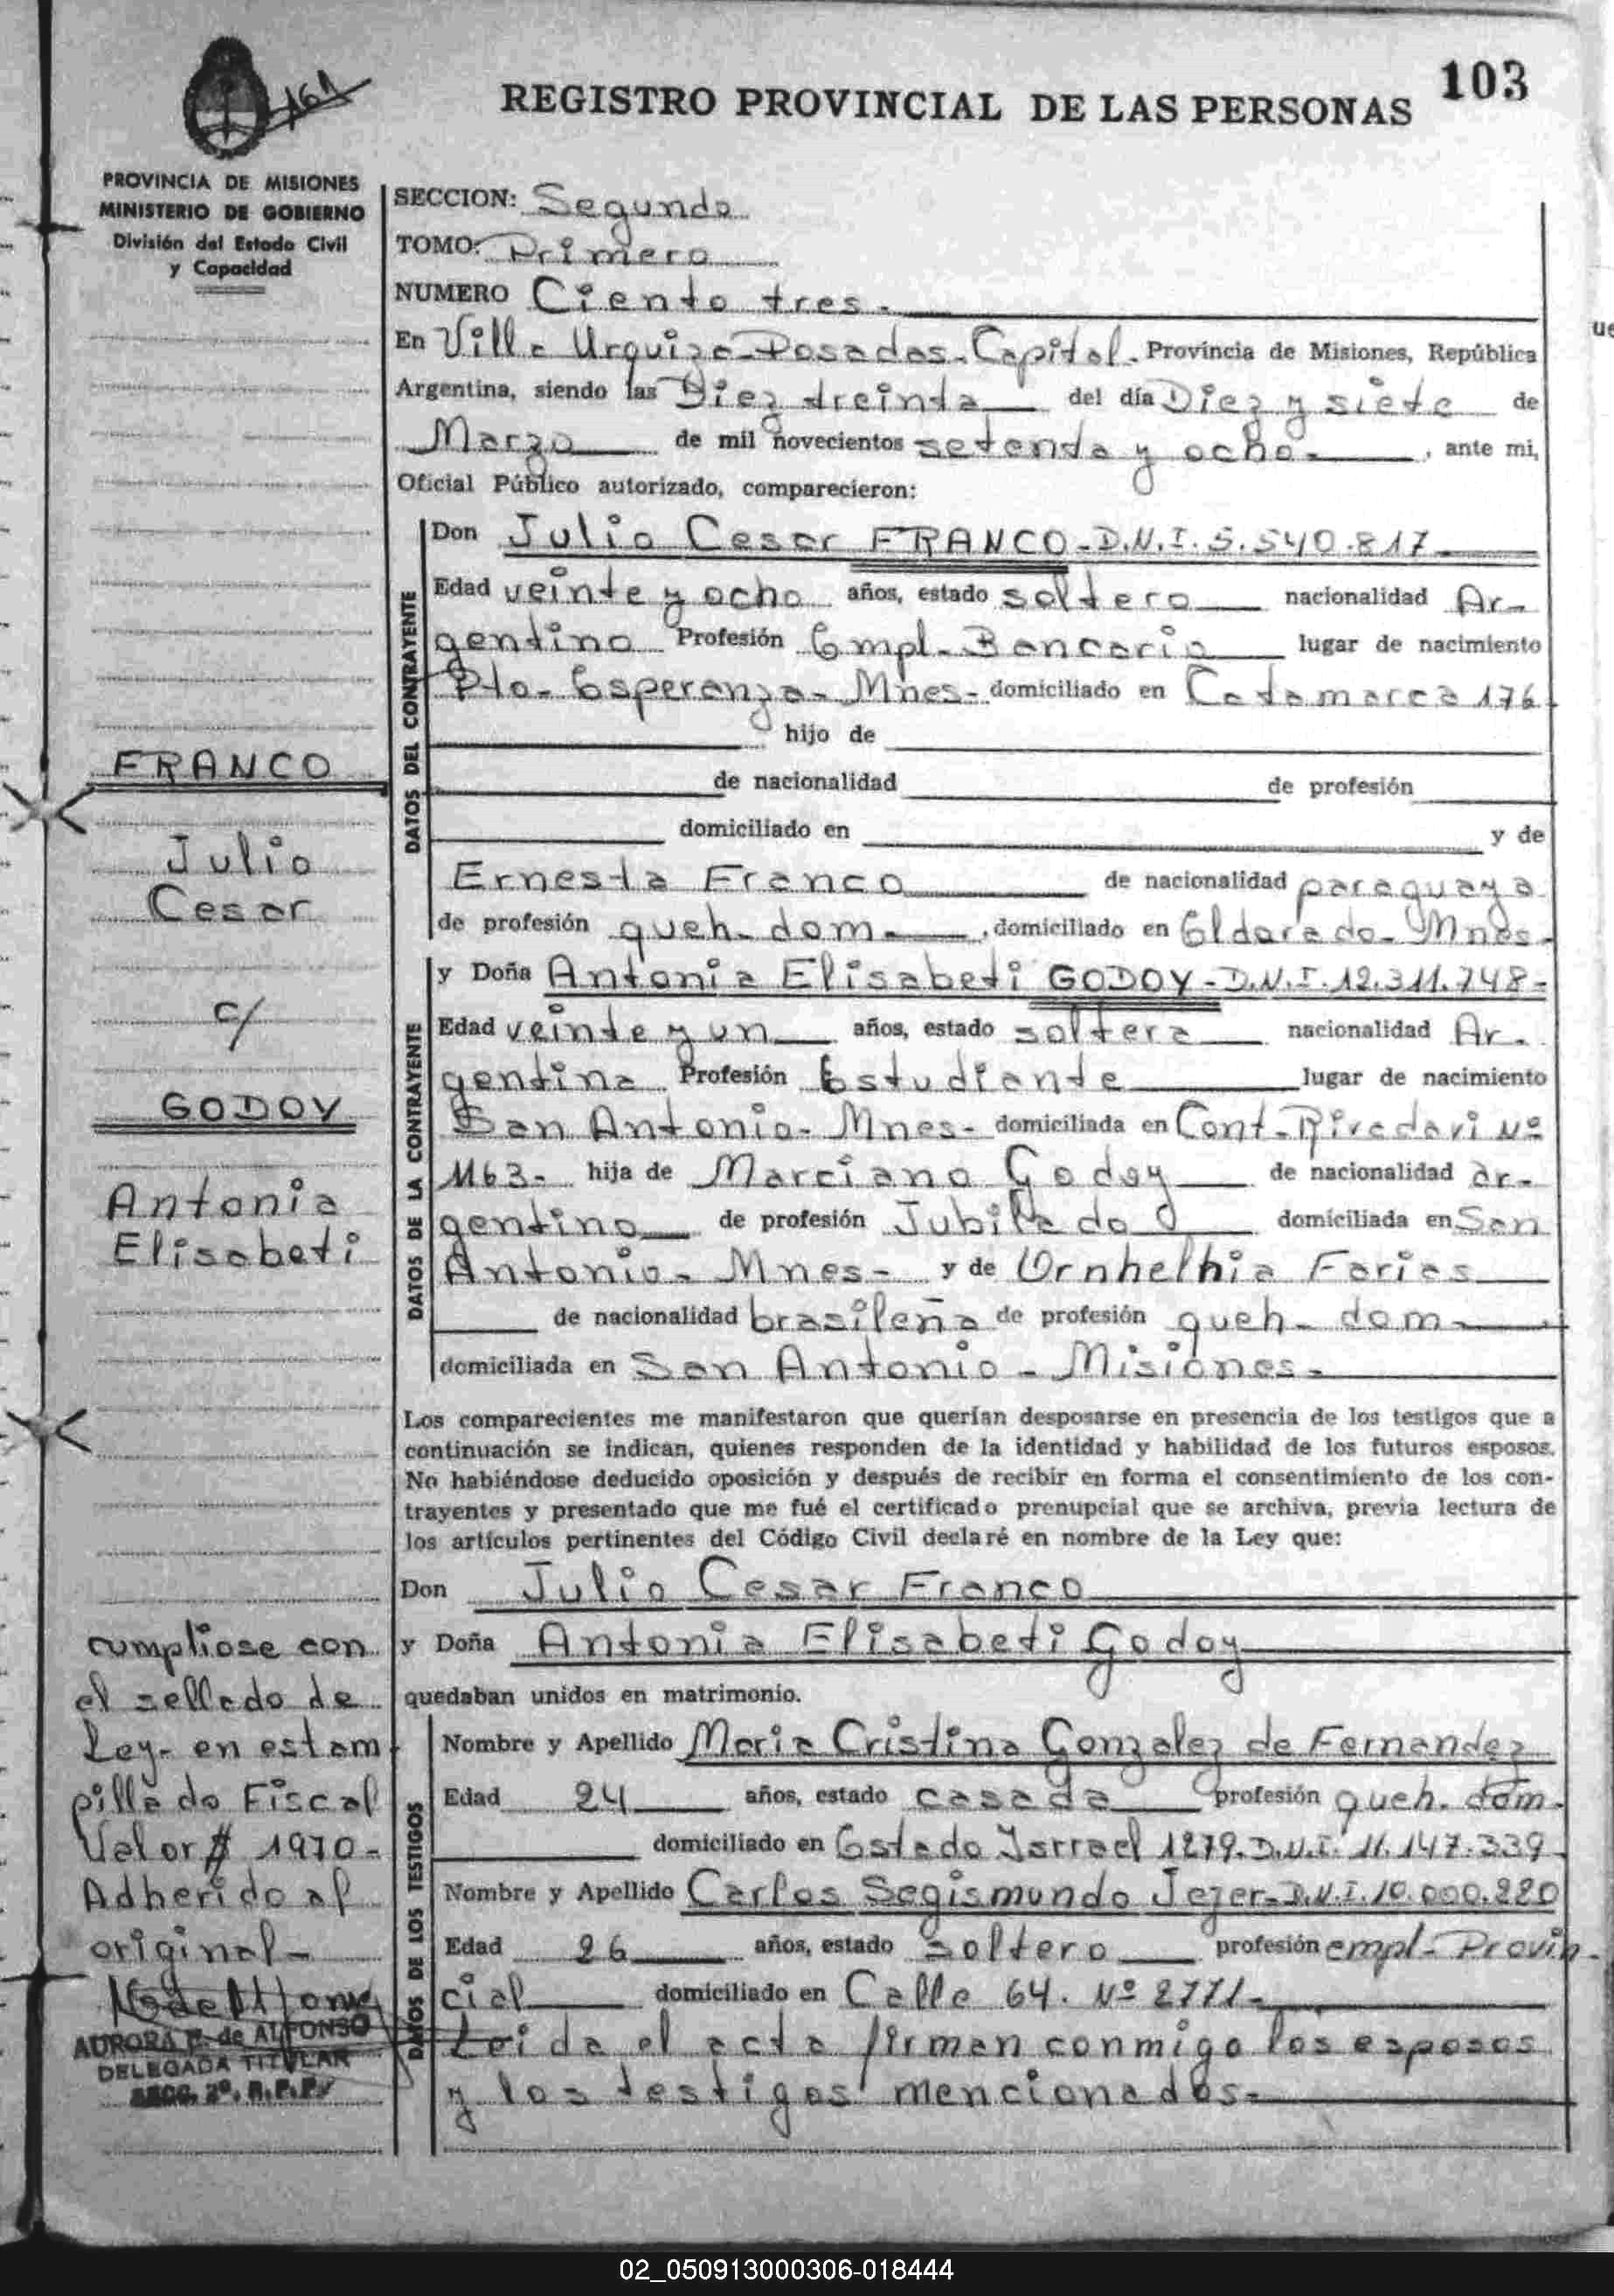 161
REGISTRO PROVINCIAL DE LAS PERSONAS 103
PROVINCIA DE MISIONES
MINISTERIO DE GOBIERNO
División del Estado Civil
y Capacidad
SECCION: Segunda
TOMO: Primero
NUMERO Ciento tres.
En Villa Urquiza-Posadas-Capital. Provincia de Misiones, República
Argentina, siendo las Diez treinta del día Diez y siete de
Marzo de mil novecientos setenta y ocho.-, ante mi,
Oficial Público autorizado, comparecieron:
DATOS DEL CONTRAYENTE
Don Julio Cesar FRANCO-D.N.I. 5.540.817
Edad veinte y ocho años, estado soltero nacionalidad Ar-
gentino Profesión Empl-Bancario lugar de nacimiento
Pto-Esperanza-Mnes- domiciliado en Catamarca 176
hijo de
de nacionalidad de profesión
domiciliado en y de
Ernesta Franco de nacionalidad paraguaya
de profesión queh-dom-, domiciliado en Eldorado-Mnes-
DATOS DE LA CONTRAYENTE
y Doña Antonia Elisabeti GODOY-D.N.I. 12.311.748-
Edad veinte y un años, estado soltera nacionalidad Ar-
gentina Profesión Estudiante lugar de nacimiento
San Antonio-Mnes- domiciliada en Cont-Rivadavi Nº
1163- hija de Marciano Godoy de nacionalidad ar-
gentino de profesión Jubilado domiciliada en San
Antonio-Mnes- y de Ornhelhia Farias
de nacionalidad brasileña de profesión queh-dom-,
domiciliada en San Antonio-Misiones-
Los comparecientes me manifestaron que querían desposarse en presencia de los testigos que a
continuación se indican, quienes responden de la identidad y habilidad de los futuros esposos.
No habiéndose deducido oposición y después de recibir en forma el consentimiento de los con-
trayentes y presentado que me fué el certificado prenupcial que se archiva, previa lectura de
los artículos pertinentes del Código Civil declaré en nombre de la Ley que:
Don Julio Cesar Franco
y Doña Antonia Elisabeti Godoy
quedaban unidos en matrimonio.
DATOS DE LOS TESTIGOS
Nombre y Apellido Maria Cristina Gonzalez de Fernandez
Edad 24 años, estado casada profesión queh. dom.
domiciliado en Estado Isrrael 1279. D.N.I. 11.147.339
Nombre y Apellido Carlos Segismundo Jezer-D.N.I. 10.000.220
Edad 26 años, estado soltero profesión empl-Provin-
cial domiciliado en Calle 64. Nº 2771-
Leida el acta firman conmigo los esposos
y los testigos mencionados-
FRANCO
Julio
Cesar
c/
GODOY
Antonia
Elisabeti
cumpliose con
el sellado de
Ley- en estam
pilla do Fiscal
Valor $ 1970-
Adherido al
original-
AURORA F. de ALFONSO
DELEGADA TITULAR
SECC. 2º. R.P.P.
02_050913000306-018444